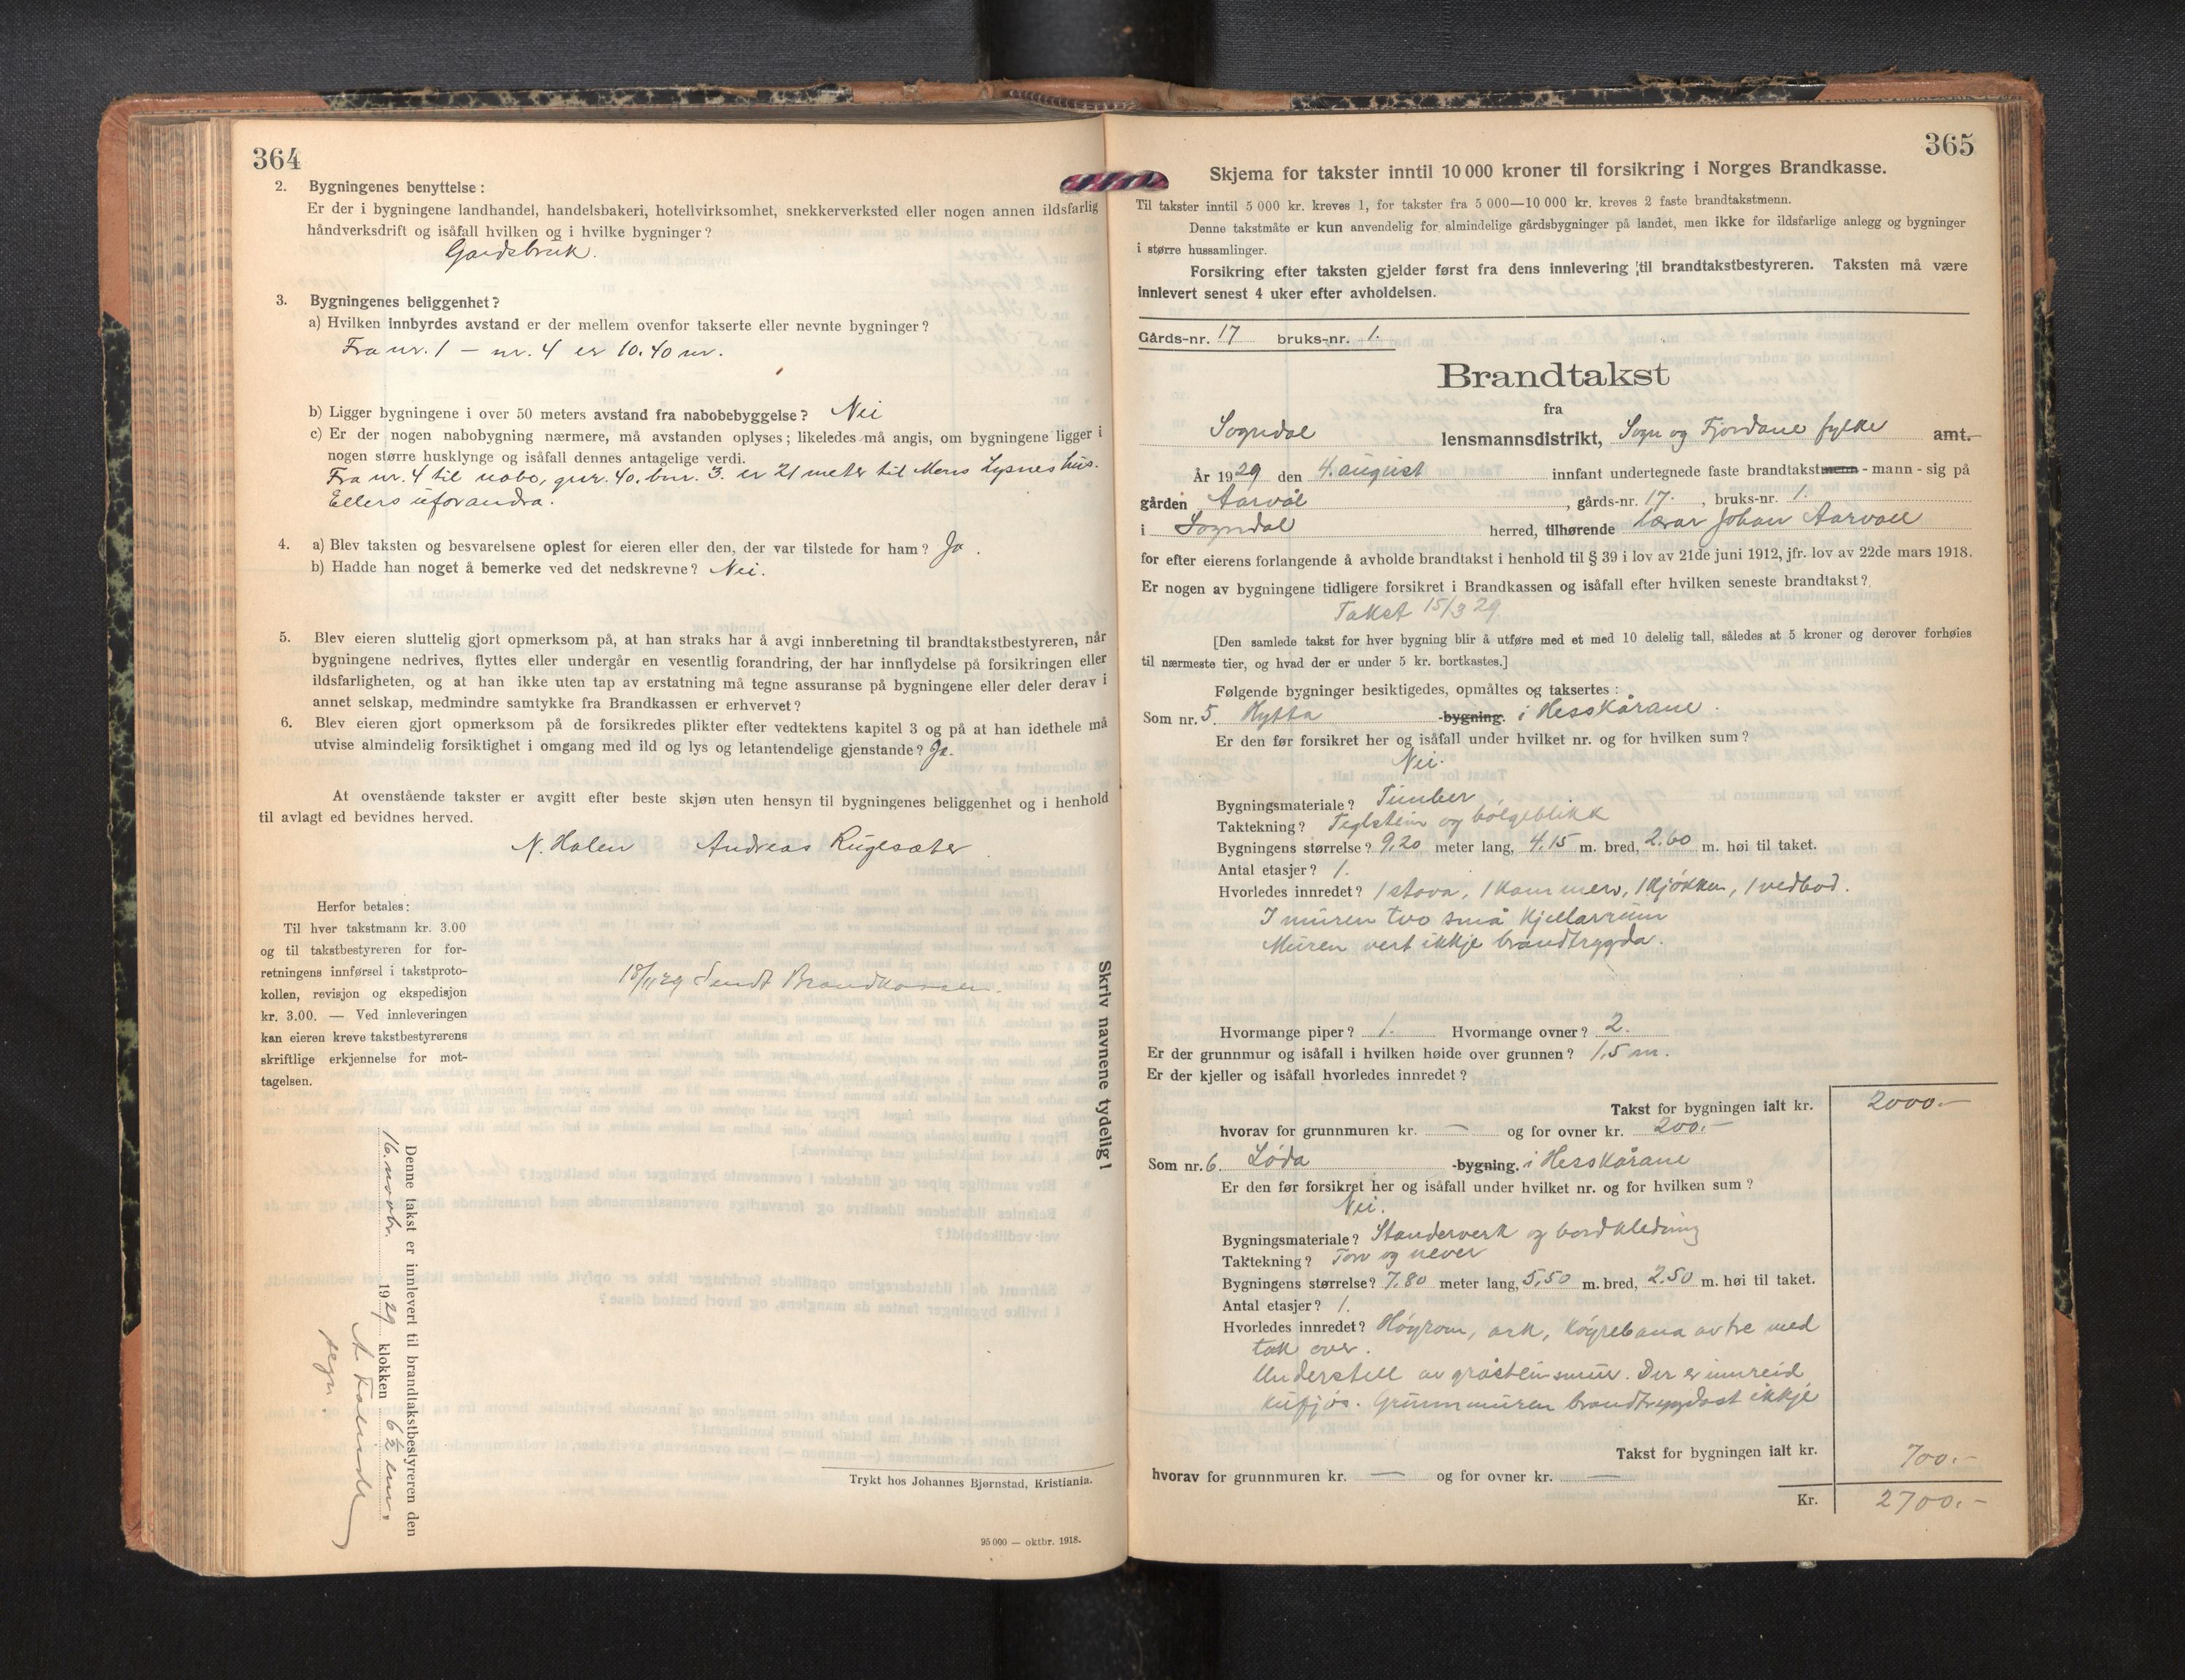 364
2. Bygningenes benyttelse:
Er der i bygningene landhandel, handelsbakeri, hotellvirksomhet, snekkerverksted eller nogen annen ildsfarlig
håndverksdrift og isåfall hvilken og i hvilke bygninger?
Gardsbruk.
3. Bygningenes beliggenhet?
a) Hvilken innbyrdes avstand er der mellem ovenfor takserte eller nevnte bygninger?
Fra nr. 1 — nr. 4 er 10.40 m.
b) Ligger bygningene i over 50 meters avstand fra nabobebyggelse? Nei
c) Er der nogen nabobygning nærmere, må avstanden oplyses; likeledes må angis, om bygningene ligger i
nogen større husklynge og isåfall dennes antagelige verdi.
Fra nr. 4 til nabo, gnr. 40. bnr. 3. er 21 meter til Mons Lysnes hus.
Ellers uforandra.
4. a) Blev taksten og besvarelsene oplest for eieren eller den, der var tilstede for ham? Ja.
b) Hadde han noget å bemerke ved det nedskrevne? Nei.
5. Blev eieren sluttelig gjort opmerksom på, at han straks har å avgi innberetning til brandtakstbestyreren, når
bygningene nedrives, flyttes eller undergår en vesentlig forandring, der har innflydelse på forsikringen eller
ildsfarligheten, og at han ikke uten tap av erstatning må tegne assuranse på bygningene eller deler derav i
annet selskap, medmindre samtykke fra Brandkassen er erhvervet?
6. Blev eieren gjort opmerksom på de forsikredes plikter efter vedtektens kapitel 3 og på at han idethele må
utvise almindelig forsiktighet i omgang med ild og lys og letantendelige gjenstande? Ja.
At ovenstående takster er avgitt efter beste skjøn uten hensyn til bygningenes beliggenhet og i henhold
til avlagt ed bevidnes herved.
N. Holen Andreas Rugesæter
Herfor betales:
Til hver takstmann kr. 3.00
og til takstbestyreren for for-
retningens innførsel i takstproto-
kollen, revisjon og ekspedisjon
kr. 3.00. — Ved innleveringen
kan eieren kreve takstbestyrerens
skriftlige erkjennelse for mot-
tagelsen.
18/11 29 Sendt Brandkassen.
Skriv navnene tydelig!
Denne takst er innlevert til brandtakstbestyreren den
16. novbr. 1929 klokken 6½ em.
Trykt hos Johannes Bjørnstad, Kristiania.
95 000 — oktbr. 1918.
365
Skjema for takster inntil 10 000 kroner til forsikring i Norges Brandkasse.
Til takster inntil 5 000 kr. kreves 1, for takster fra 5 000—10 000 kr. kreves 2 faste brandtakstmenn.
Denne takstmåte er kun anvendelig for almindelige gårdsbygninger på landet, men ikke for ildsfarlige anlegg og bygninger
i større hussamlinger.
Forsikring efter taksten gjelder først fra dens innlevering til brandtakstbestyreren. Taksten må være
innlevert senest 4 uker efter avholdelsen.
Gårds-nr. 17 bruks-nr. 1.
Brandtakst
fra
Sogndal lensmannsdistrikt, Sogn og Fjordane fylke amt.
År 1929 den 4. august innfant undertegnede faste brandtakstmenn - mann - sig på
gården Aarvål, gårds-nr. 17., bruks-nr. 1.
i Sogndal herred, tilhørende lærar Johan Aarvoll
for efter eierens forlangende å avholde brandtakst i henhold til § 39 i lov av 21de juni 1912, jfr. lov av 22de mars 1918.
Er nogen av bygningene tidligere forsikret i Brandkassen og isåfall efter hvilken seneste brandtakst?
Takst 15/3 29
[Den samlede takst for hver bygning blir å utføre med et med 10 delelig tall, således at 5 kroner og derover forhøies
til nærmeste tier, og hvad der er under 5 kr. bortkastes.]
Følgende bygninger besiktigedes, opmåltes og taksertes:
Som nr. 5. Hytta -bygning. i Hesskårane.
Er den før forsikret her og isåfall under hvilket nr. og for hvilken sum?
Nei.
Bygningsmateriale? Timber
Taktekning? Teglstein og bølgeblikk
Bygningens størrelse? 9,20 meter lang, 4,15 m. bred, 2.60 m. høi til taket.
Antal etasjer? 1.
Hvorledes innredet? 1 stova, 1 kammers, 1 kjøkken, 1 vedbod.
I muren tvo små kjellarrum
Muren vert ikkje brandtrygda.
Hvormange piper? 1. Hvormange ovner? 2.
Er der grunnmur og isåfall i hvilken høide over grunnen? 1,5 m.
Er der kjeller og isåfall hvorledes innredet?
Takst for bygningen ialt kr. 2000.—
hvorav for grunnmuren kr. — og for ovner kr. 200.—
Som nr. 6. Løda -bygning. i Hesskårane
Er den før forsikret her og isåfall under hvilket nr. og for hvilken sum?
Nei.
Bygningsmateriale? Standerverk og bordkledning
Taktekning? Torv og never
Bygningens størrelse? 7,80 meter lang, 5,50 m. bred, 2.50 m. høi til taket.
Antal etasjer? 1.
Hvorledes innredet? Høyrom, ark, køyrebana av tre med
tak over.
Understell av gråsteinsmur. Der er innreid
kufjøs. Grunnmuren brandtrygdast ikkje
Takst for bygningen ialt kr. 700.—
hvorav for grunnmuren kr. — og for ovner kr. —
Kr. 2700.—